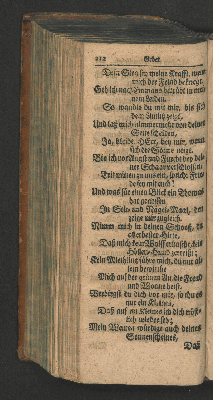 212 Gebet.
Dein Sieg sey meine Krafft, wenn
mich der Feind bekriegt.
Geh ich nach Emmaus betrübt in mei-
nem Leiden,
So wandle du mit mir, bis sich
dein Antlitz zeigt,
Und laß mich nimmermehr von deiner
Seite scheiden,
Ja, bleibe, HErr, bey mir, wenn
sich die Sonne neigt.
Bin ich vor Angst und Furcht bey dei-
ner Schaar verschlossen,
Tritt mitten zu uns ein, sprich: Frie-
de sey mit euch!
Und was für einen Blick ein Thomas
hat genossen
In Seit- und Nägel-Maal, den
zeige mir zugleich.
Nimm mich in deinen Schooß, du
allerbester Hirte,
Daß mich kein Wolff erhascht, kein
Höllen-Hund zerreißt;
Kein Miethling führe mich, du nur al-
lein bewirthe
Mich auf der grünen Au, die Freud
und Wonne heist.
Verbirgst du dich vor mir, so thu es
nur ein Kleines,
Daß auf ein Kleines ich dich wie-
der sehe;
Mein Weinen würdige auch deines
Sonnenscheines,
Daß